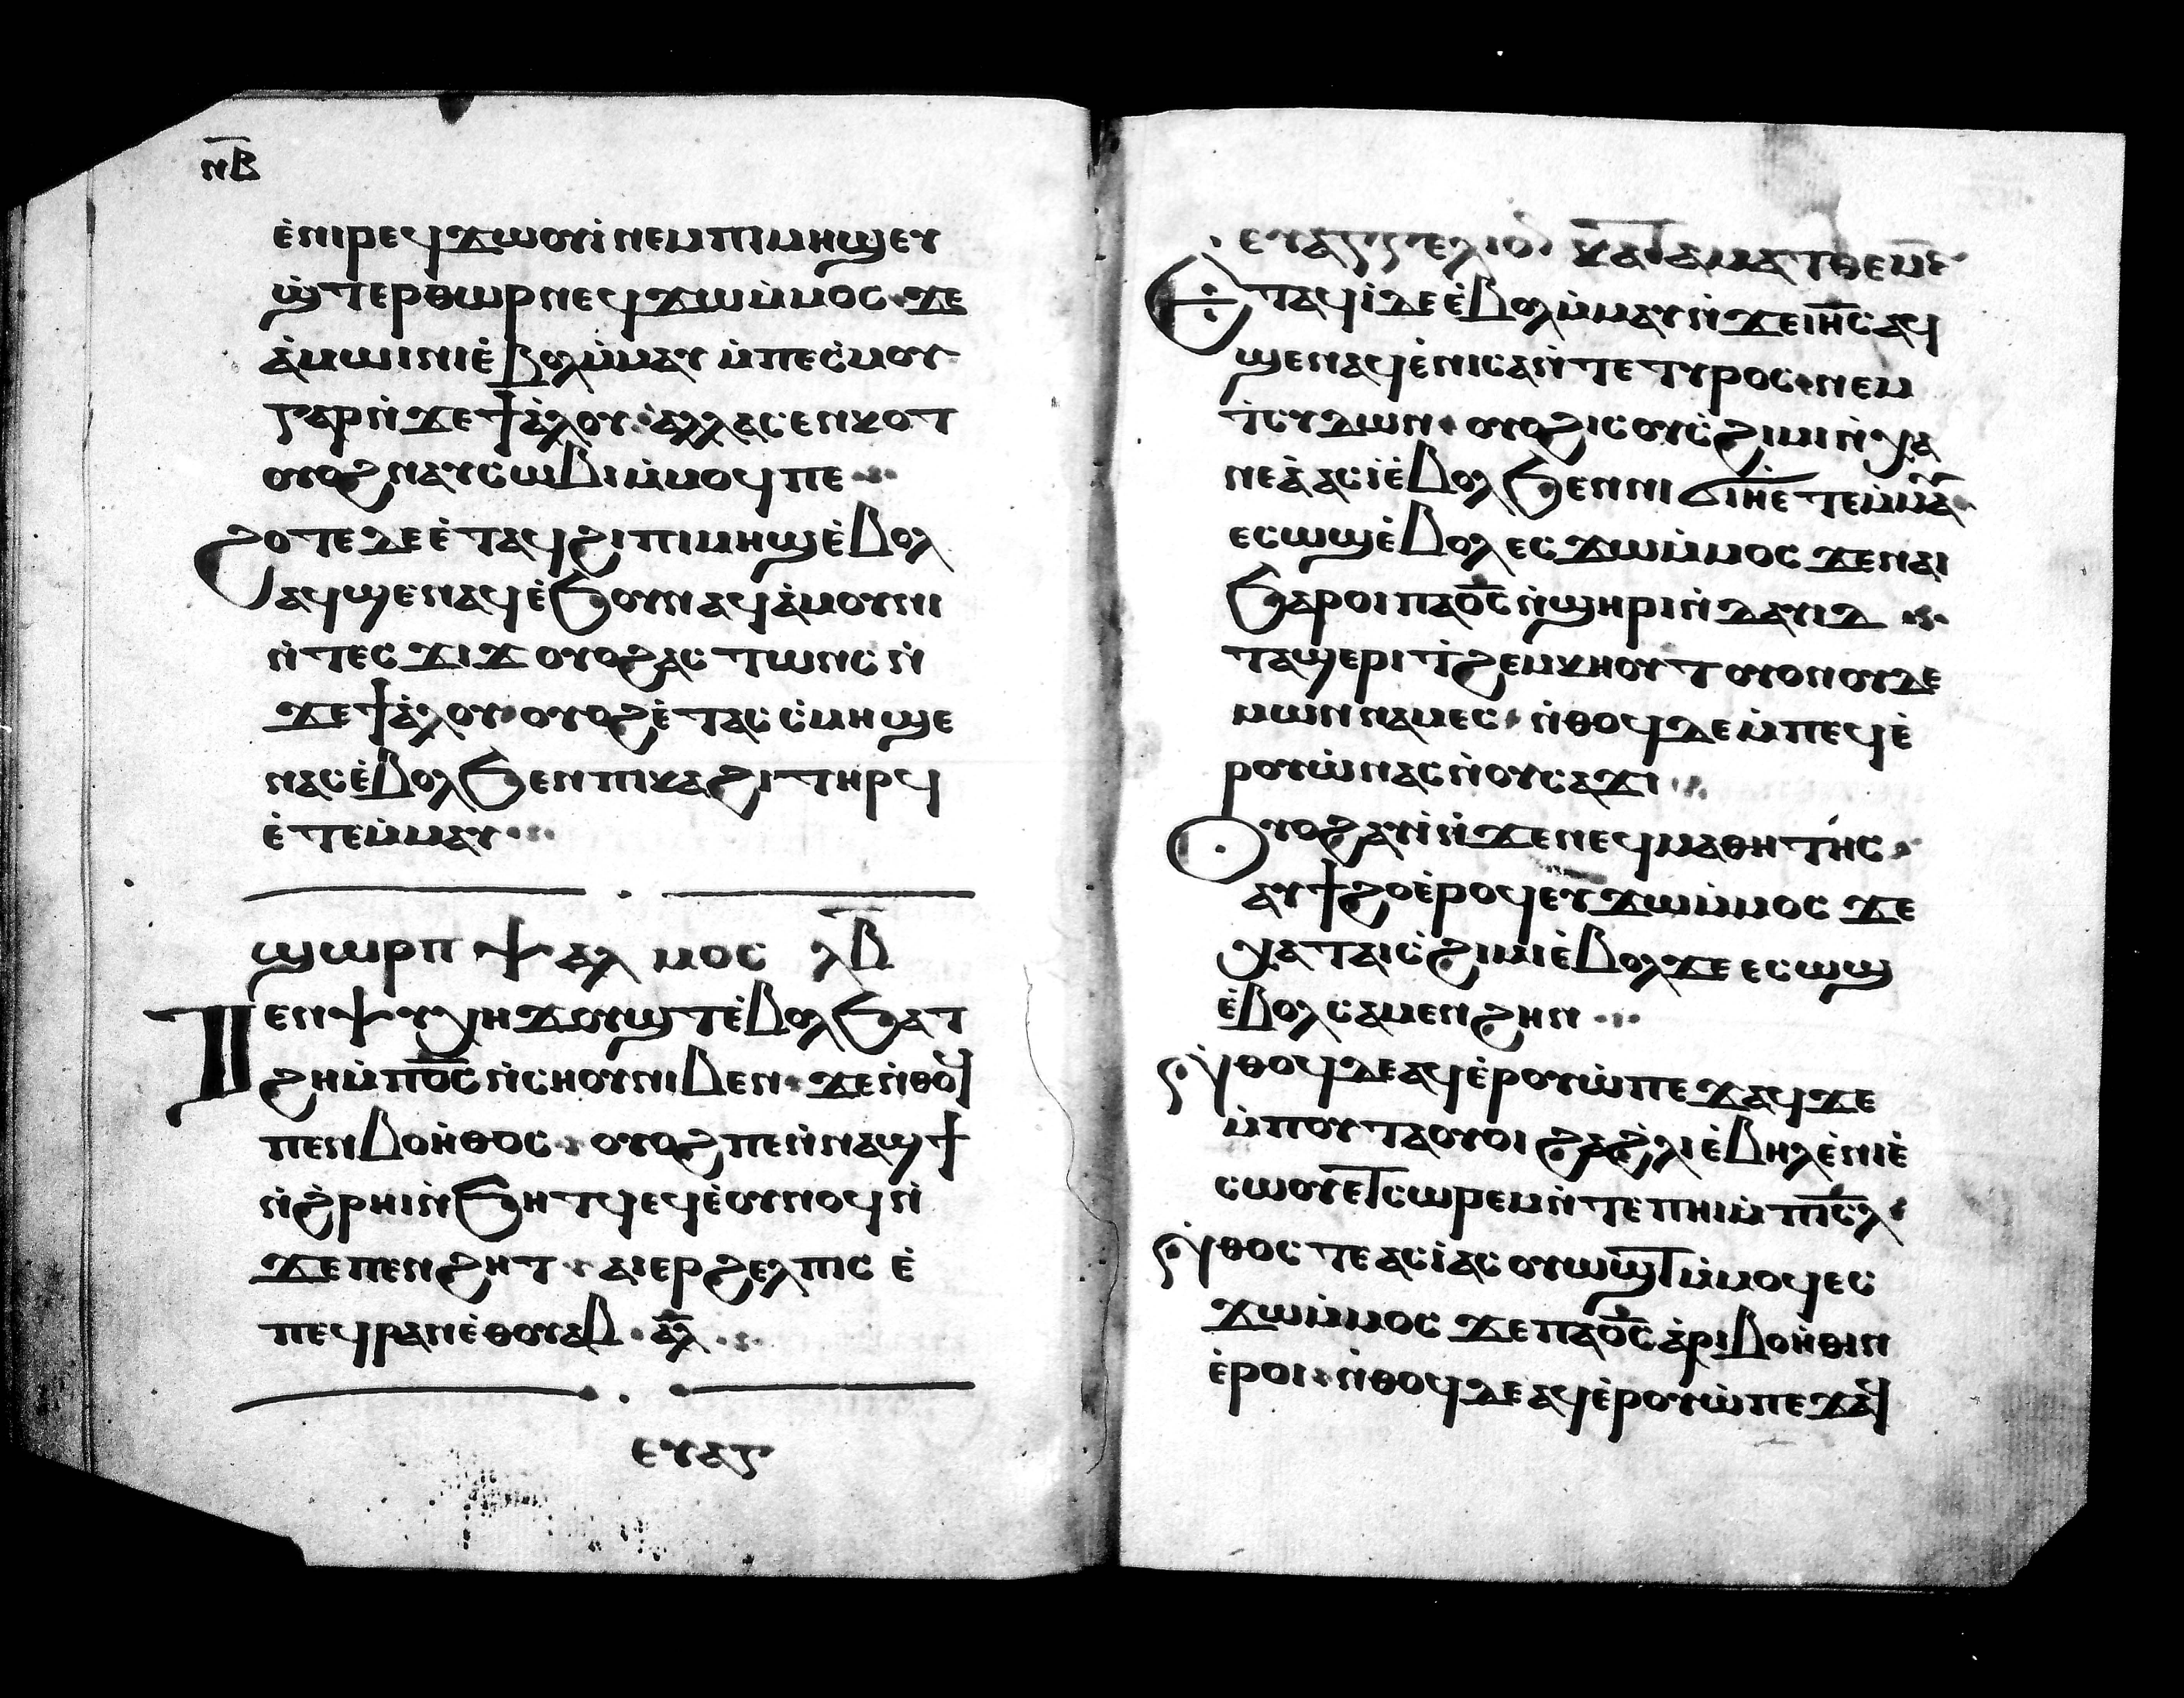 ⲛ̅ⲃ̅
ⲉ̀ⲛⲓⲣⲉϥϫⲱⲟⲩⲓ̀ⲛⲉⲙⲡⲓⲙⲏϣⲉⲩ
ϣ̀ⲧⲉⲣⲑⲱⲣⲛⲉϥϫⲱⲙ̀ⲙⲟⲥ·ϫⲉ
ⲁ̀ⲙⲱⲓⲛⲓⲉ̀ⲃⲟⲗⲙ̀ⲙⲁⲩ ⲙ̀ⲡⲉⲥ̀ⲙⲟⲩ
ⲅⲁⲣⲛ̀ϫⲉϯⲁ̀ⲗⲟⲩ·ⲁ̀ⲗⲗⲁⲥⲉⲛⲕⲟⲧ
ⲟⲩⲟϩⲛⲁⲩⲥⲱⲃⲓⲙ̀ⲙⲟϥⲡⲉ
ϩⲟⲧⲉⲇⲉⲉ̀ⲧⲁϥϩⲓⲡⲓⲙⲏϣⲉ̀ⲃⲟⲗ
ⲁϥϣⲉⲛⲁϥⲉ̀ϧⲟⲩⲛⲁϥⲁ̀ⲙⲟⲩⲛⲓ
ⲛ̀ⲧⲉⲥϫⲓϫⲟⲩⲟϩⲁⲥⲧⲱⲛⲥⲛ̀
ϫⲉϯⲁ̀ⲗⲟⲩ·ⲟⲩⲟϩⲉ̀ⲧⲁⲥⲥ̀ⲙⲏϣⲉ
ⲛⲁⲥⲉ̀ⲃⲟⲗϧⲉⲛⲡⲓⲕⲁϩⲓⲧⲏⲣϥ
ⲉ̀ⲧⲉⲙ̀ⲙⲁⲩ
ϣⲱⲣⲡ ⲯⲁⲗⲙⲟⲥ ⲗ̅ⲃ̅
ⲧⲉⲛⲯⲩⲭⲏϫⲟⲩϣⲧⲉ̀ⲃⲟⲗϧⲁⲧ
ϩⲏⲙ̀ⲡⲟ̅ⲥ̅ⲛ̀ⲥⲏⲟⲩⲛⲓⲃⲉⲛ·ϫⲉⲛ̀ⲑⲟϥ
ⲡⲉⲛⲃⲟⲏ̀ⲑⲟⲥ·ⲟⲩⲟϩⲡⲉⲛ̀ⲛⲁϣϯ
ⲛ̀ϩ̀ⲣⲏⲓⲛ̀ϧⲏⲧϥⲉϥⲉ̀ⲟⲩⲛⲟϥⲛ̀
ϫⲉⲡⲉⲛϩⲏⲧ·ⲁⲓⲉⲣϩⲉⲗⲡⲓⲥ ⲉ̀
ⲡⲉϥⲣⲁⲛⲉ̀ⲑⲟⲩⲁⲃ·ⲁ̅ⲗ̅
ⲉⲩⲁⲅ
ⲉⲩⲁⲅⲅⲉⲗⲓⲟⲛ ⲕⲁⲧⲁⲙⲁⲧⲑⲉⲟⲛ
ⲉⲧⲁϥⲓ̀ⲇⲉⲉ̀ⲃⲟⲗⲙ̀ⲙⲁⲩⲛ̀ϫⲉⲓⲏ̅ⲥ̅ⲁϥ
ϣⲉⲛⲁϥⲉ̀ⲛⲓⲥⲁⲛ̀ⲧⲉⲧⲩⲣⲟⲥ·ⲛⲉⲙ
ⲧ̀ⲥⲩⲇⲱⲛ·ⲟⲩⲟϩⲓⲥⲟⲩⲥ̀ϩⲓⲙⲓⲛ̀ⲭⲁ
ⲛⲉⲁ̀ⲁⲥⲓ̀ⲉ̀ⲃⲟⲗϧⲉⲛⲛⲓϭⲓⲏ̅ⲉⲧⲉⲙ̀ⲙⲁ
ⲉⲥⲱϣⲉ̀ⲃⲟⲗⲉⲥϫⲱⲙ̀ⲙⲟⲥ ϫⲉⲛⲁⲓ
ϧⲁⲣⲟⲓⲡⲁⲟ̅ⲥ̅ⲛ̀ϣⲏⲣⲓⲛ̀ⲇⲁⲩⲓⲇ
ⲧⲁϣⲉⲣⲓⲧ̀ϩⲉⲙⲕⲏⲟⲩⲧⲟⲩⲟⲛⲟⲩⲇⲉ
ⲙⲱⲛⲛⲁⲙⲉⲥ·ⲛ̀ⲑⲟϥⲇⲉⲙ̀ⲡⲉϥⲉ̀
ⲣⲟⲩⲱ̀ⲛⲁⲥⲛ̀ⲟⲩⲥⲁϫⲓ
ⲟⲩⲟϩⲁⲩⲓ̀ⲛ̀ϫⲉⲛⲉϥⲙⲁⲑⲏⲧⲏⲥ
ⲁⲩϯϩⲟⲉ̀ⲣⲟϥⲉⲩϫⲱⲙ̀ⲙⲟⲥ ϫⲉ
ⲭⲁⲧⲁⲓⲥ̀ϩⲓⲙⲓⲉ̀ⲃⲟⲗϫⲉ ⲉⲥⲱϣ
ⲉ̀ⲃⲟⲗⲥⲁⲙⲉⲛϩⲏⲛ
ⲛ̀ⲑⲟϥⲇⲉⲁϥⲉ̀ⲣⲟⲩⲱ̀ⲡⲉϫⲁϥϫⲉ
ⲙ̀ⲡⲟⲩⲧⲁⲟⲩⲟⲓ ϩⲁϩ̀ⲗⲓⲉ̀ⲃⲏⲗⲉ̀ⲛⲓⲉ̀
ⲥⲱⲟⲩⲉⲧⲥⲱⲣⲉⲙⲛ̀ⲧⲉⲡⲏⲓⲙ̀ⲡⲓ̅ⲥ̅ⲗ̅
ⲛ̀ⲑⲟⲥⲧⲉⲁⲥⲓ̀ⲁⲥⲟⲩⲱϣⲧⲙ̀ⲙⲟϥⲉⲥ
ϫⲱⲙ̀ⲙⲟⲥ ϫⲉⲡⲁⲟ̅ⲥ̅ⲁ̀ⲣⲓⲃⲟⲏ̀ⲑⲓⲛ
ⲉ̀ⲣⲟⲓ·ⲛ̀ⲑⲟϥⲇⲉⲁϥⲉ̀ⲣⲟⲩⲱ̀ⲡⲉϫⲁϥ